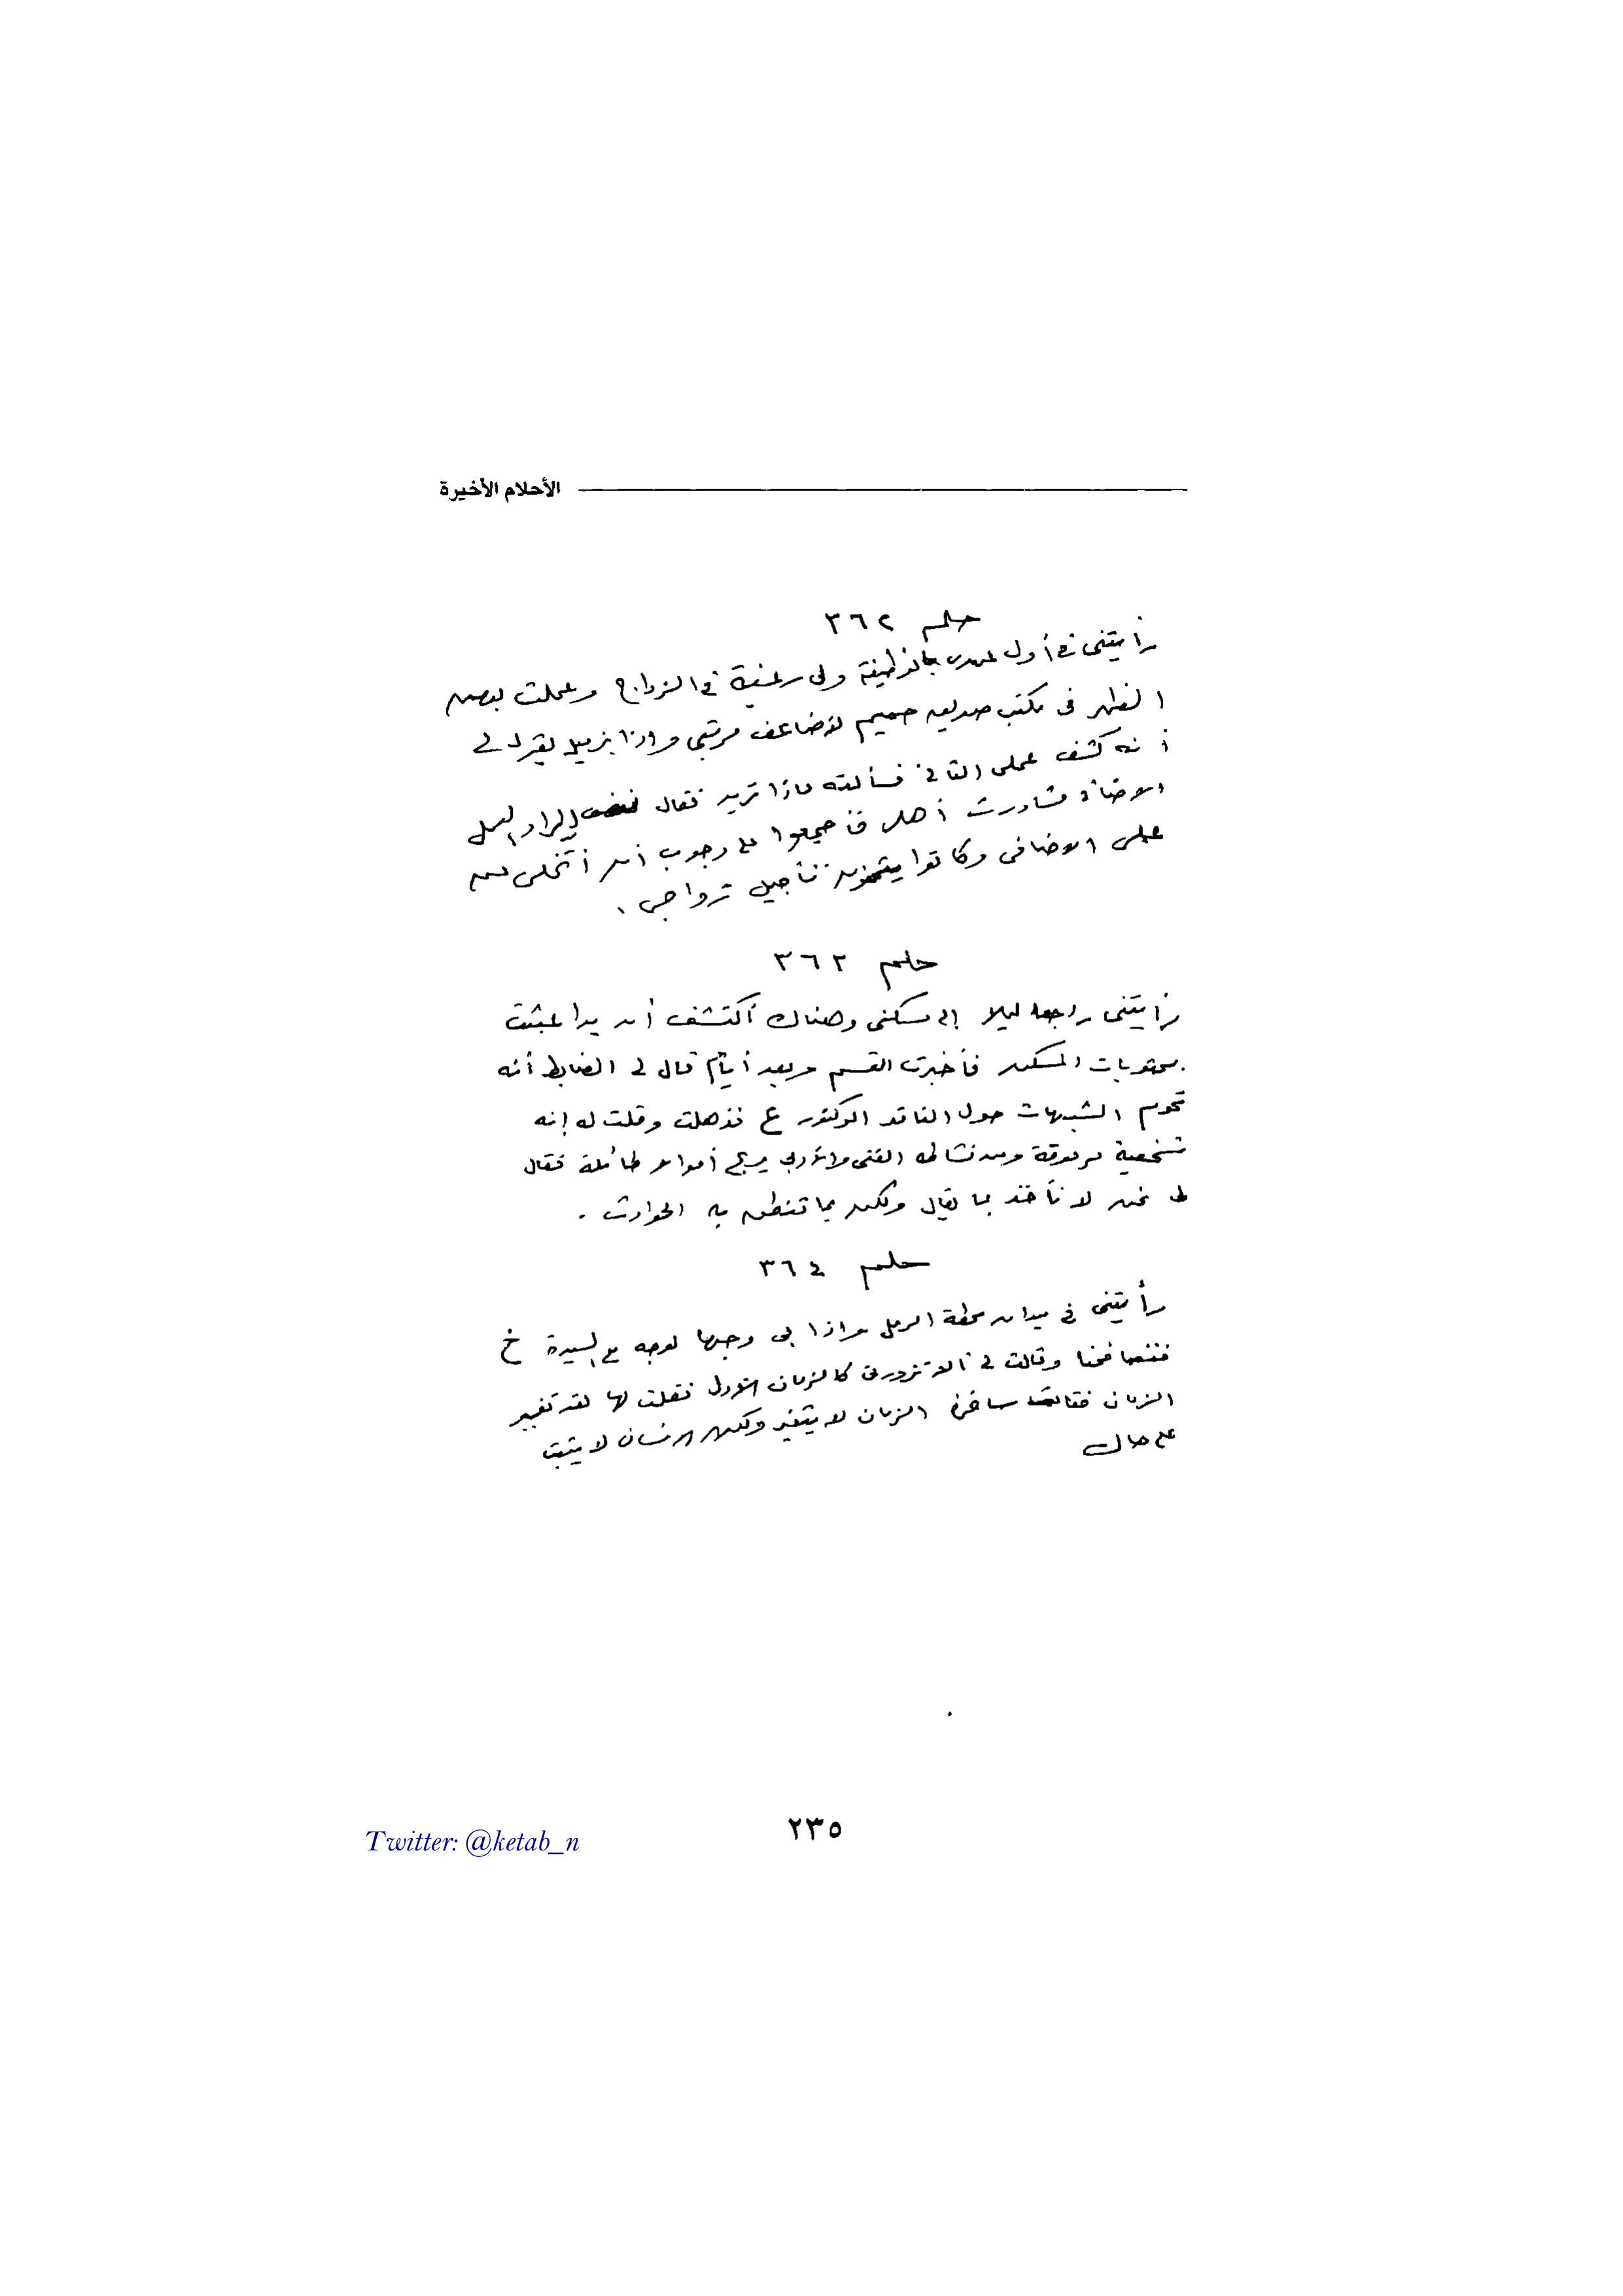 الأحلام الأخيرة
حلم ٣٦٢
رأيتنى فى أول عهدى بالوظيفة ولى رغبة فى الزواج وعملت بعض
الظهر فى مكتب صديق حميم لأضاعف مرتبى وإذا بزميل يقول لى
أنه كشف عملى الثانى فسألته ماذا تريد فقال نصف إيراد العمل
الإضافى فشاورت أهلى فأجمعوا على وجوب أن أتخلى عن
عملى الإضافى وكانوا يتمنون تأجيل زواجى.
حلم ٣٦٣
رأيتنى راجعا ليلا إلى مسكنى وهناك أكتشف أن يدا عبثت
بمحتويات المسكن فأخبرت القسم وبعد أيام قال لى الضابط أنه
تحوم الشبهات حول الناقد الدكتور ع فذهلت وقلت له إنه
شخصية مرموقة ومن نشاطه الفنى والأدبى يربح أموالا طائلة فقال
لى نحن لا نأخذ بما يقال ولكن بما تنطق به الحوادث.
حلم ٣٦٤
رأيتنى فى ميدان محطة الرمل وإذا بى وجها لوجه مع السيدة خ
فتصافحنا وقالت لى ألا تزورنى كالزمان الأول فقلت لها لقد تغير
الزمان فقالت ساخرة الزمان لا يتغير ولكن الإنسان لا يثبت
على حال
٢٣٥
Twitter: @ketab_n